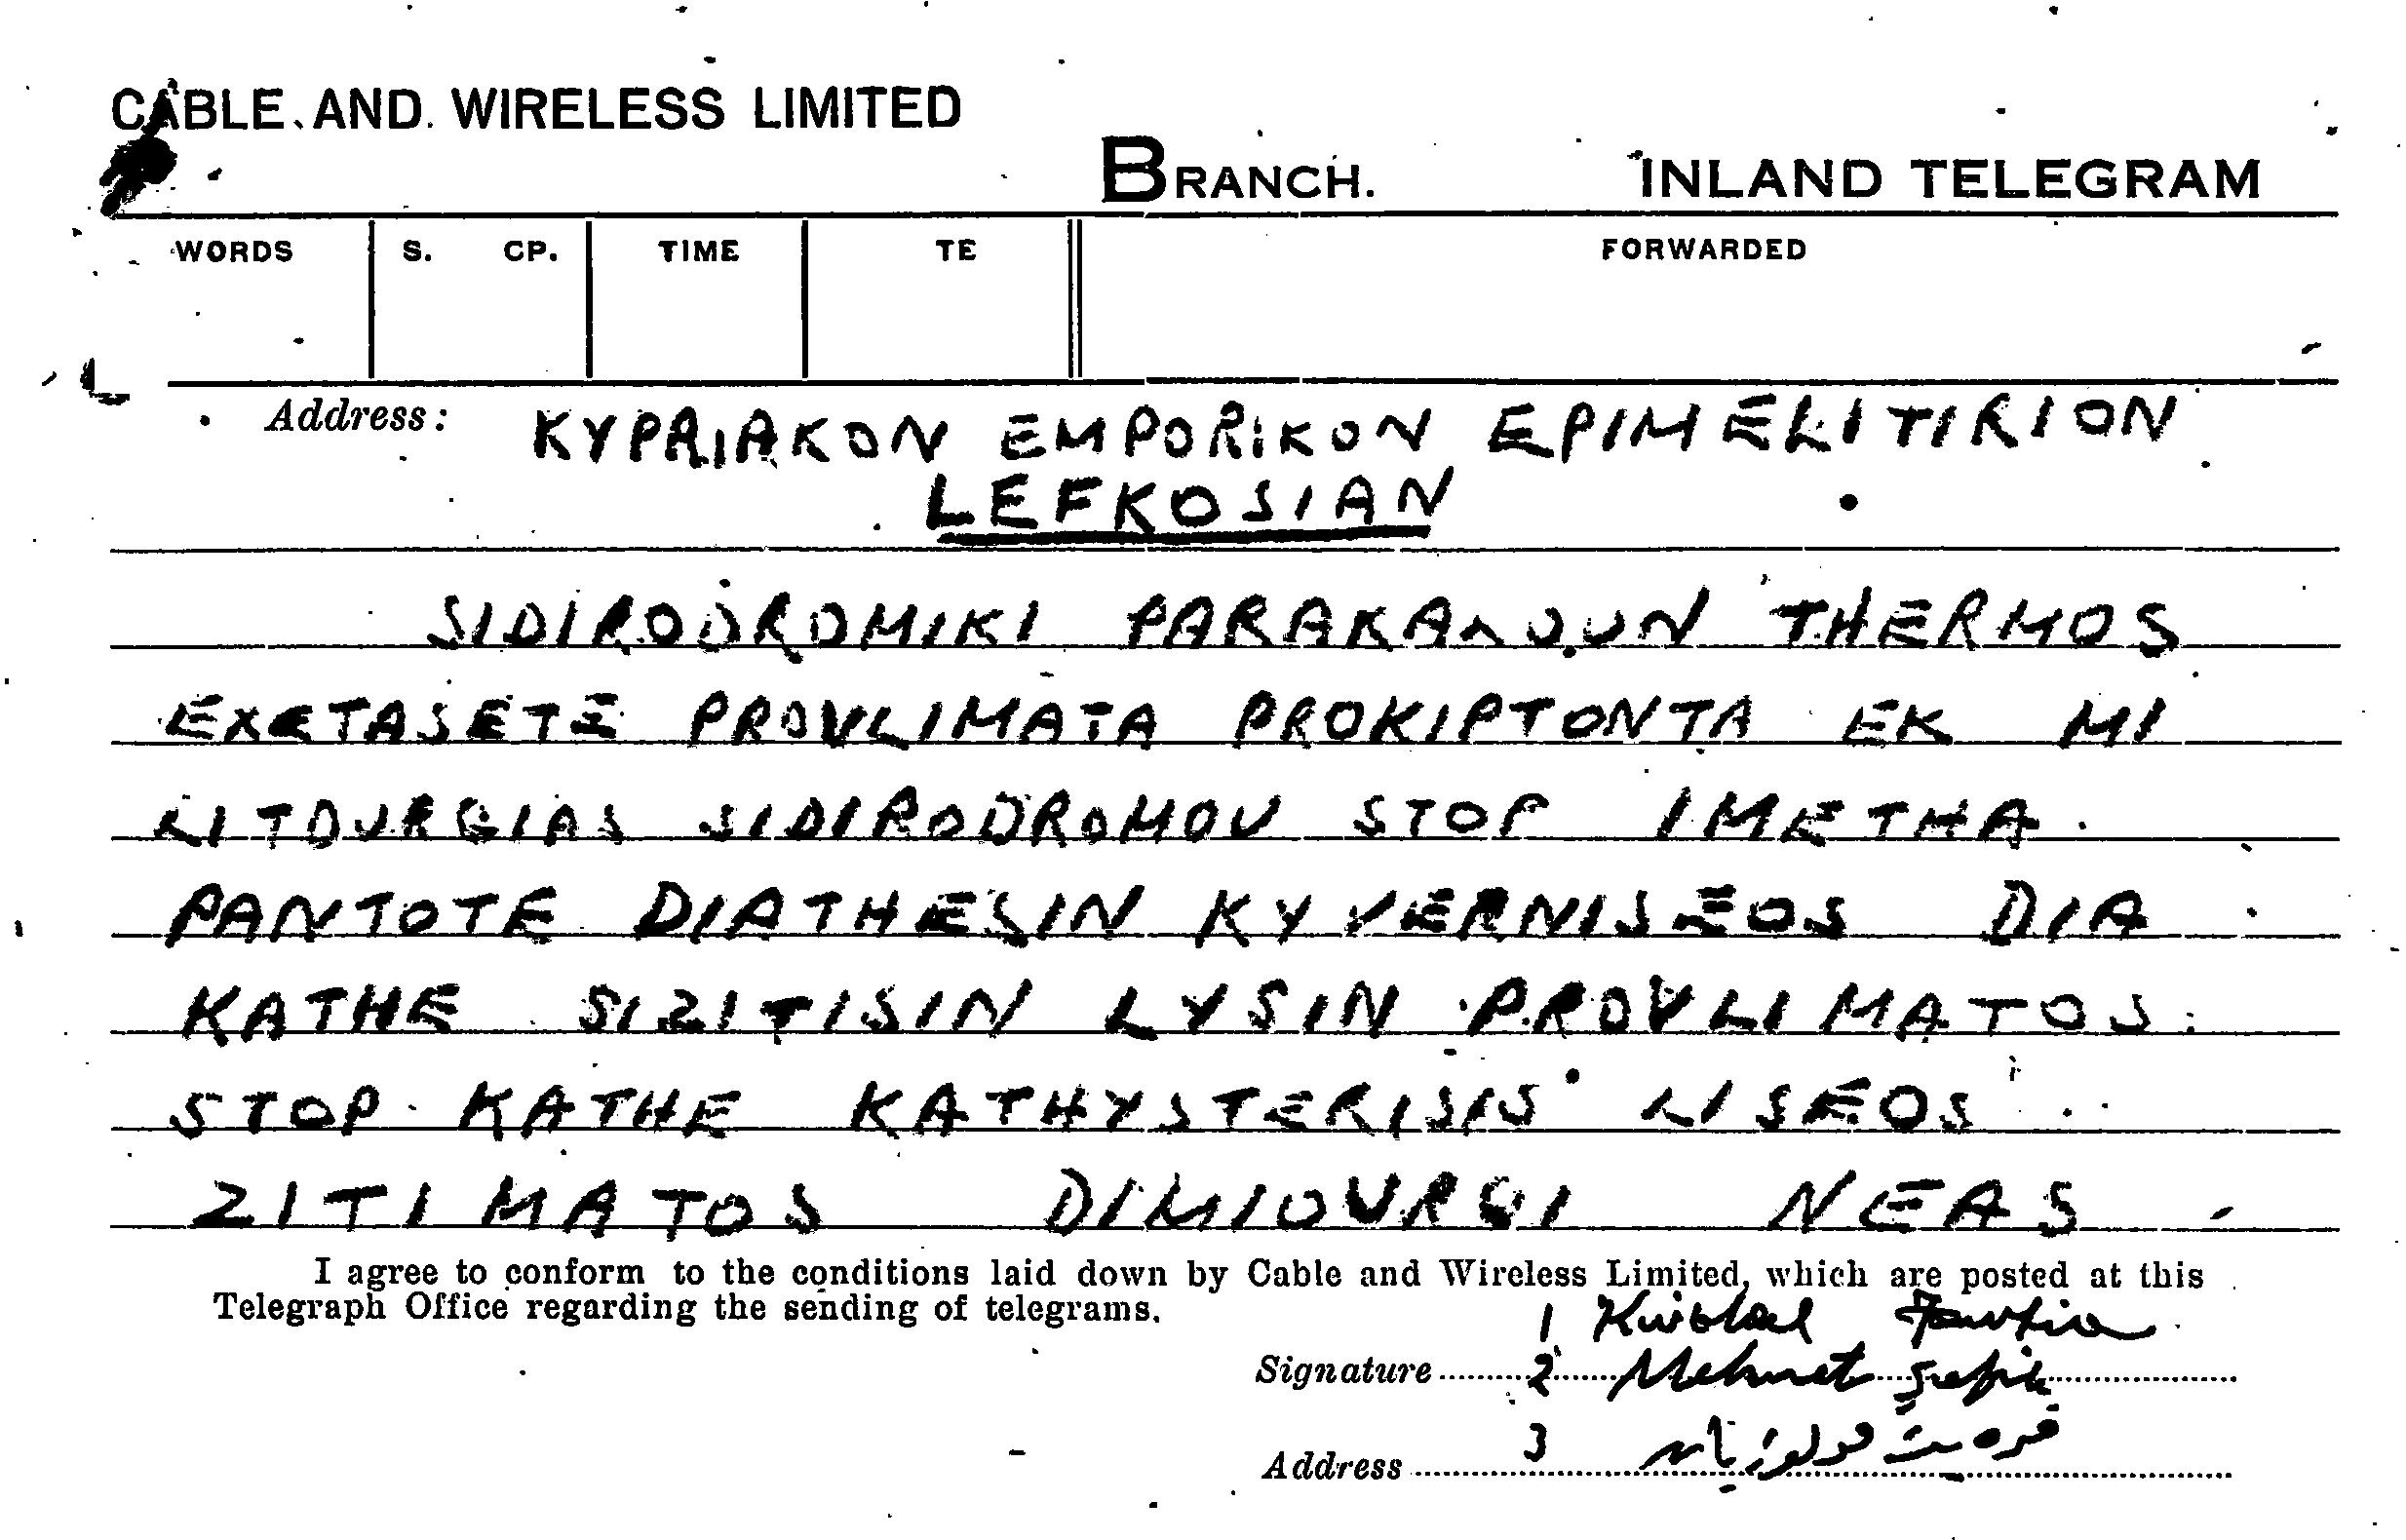 CABLE AND WIRELESS LIMITED
BRANCH. INLAND TELEGRAM
WORDS S. CP. TIME TE FORWARDED
Address: KYPRIAKON EMPORIKON EPIMELITIRION
LEFKOSIAN
SIDIRODROMIKI PARAKALOUN THERMOS
EXETASETE PROVLIMATA PROKIPTONTA EK MI
LITOURGIAS SIDIRODROMOU STOP IMETHA
PANTOTE DIATHESIN KYVERNISEOS DIA
KATHE SIZITISIN LYSIN PROVLIMATOS
STOP KATHE KATHYSTERISIS LISEOS
ZITIMATOS DIMIOURGI NEAS
I agree to conform to the conditions laid down by Cable and Wireless Limited, which are posted at this
Telegraph Office regarding the sending of telegrams.
1
Signature 2 Mehmet Şefik
Address 3